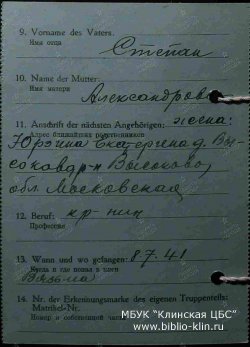 9. Vorname des Vaters.
Имя отца
Степан
10. Name der Mutter:
Имя матери
Александрова
11. Anschrift der nächsten Angehörigen: жена:
Адрес ближайших родственников
Юрэина Екатерина д. Вы-
соковар-н Высоково,
обл Московская
12. Beruf:
Профессия
13. Wann und wo gefangen: 8 7. 41
Когда и где попал в плен
Вязьма
14. Nr. der Erkennungsmarke des eigenen Truppenteils:
Matrikel-Nr.
Номер и собственной части
МБУК "Клинская ЦБС"
www.biblio-klin.ru